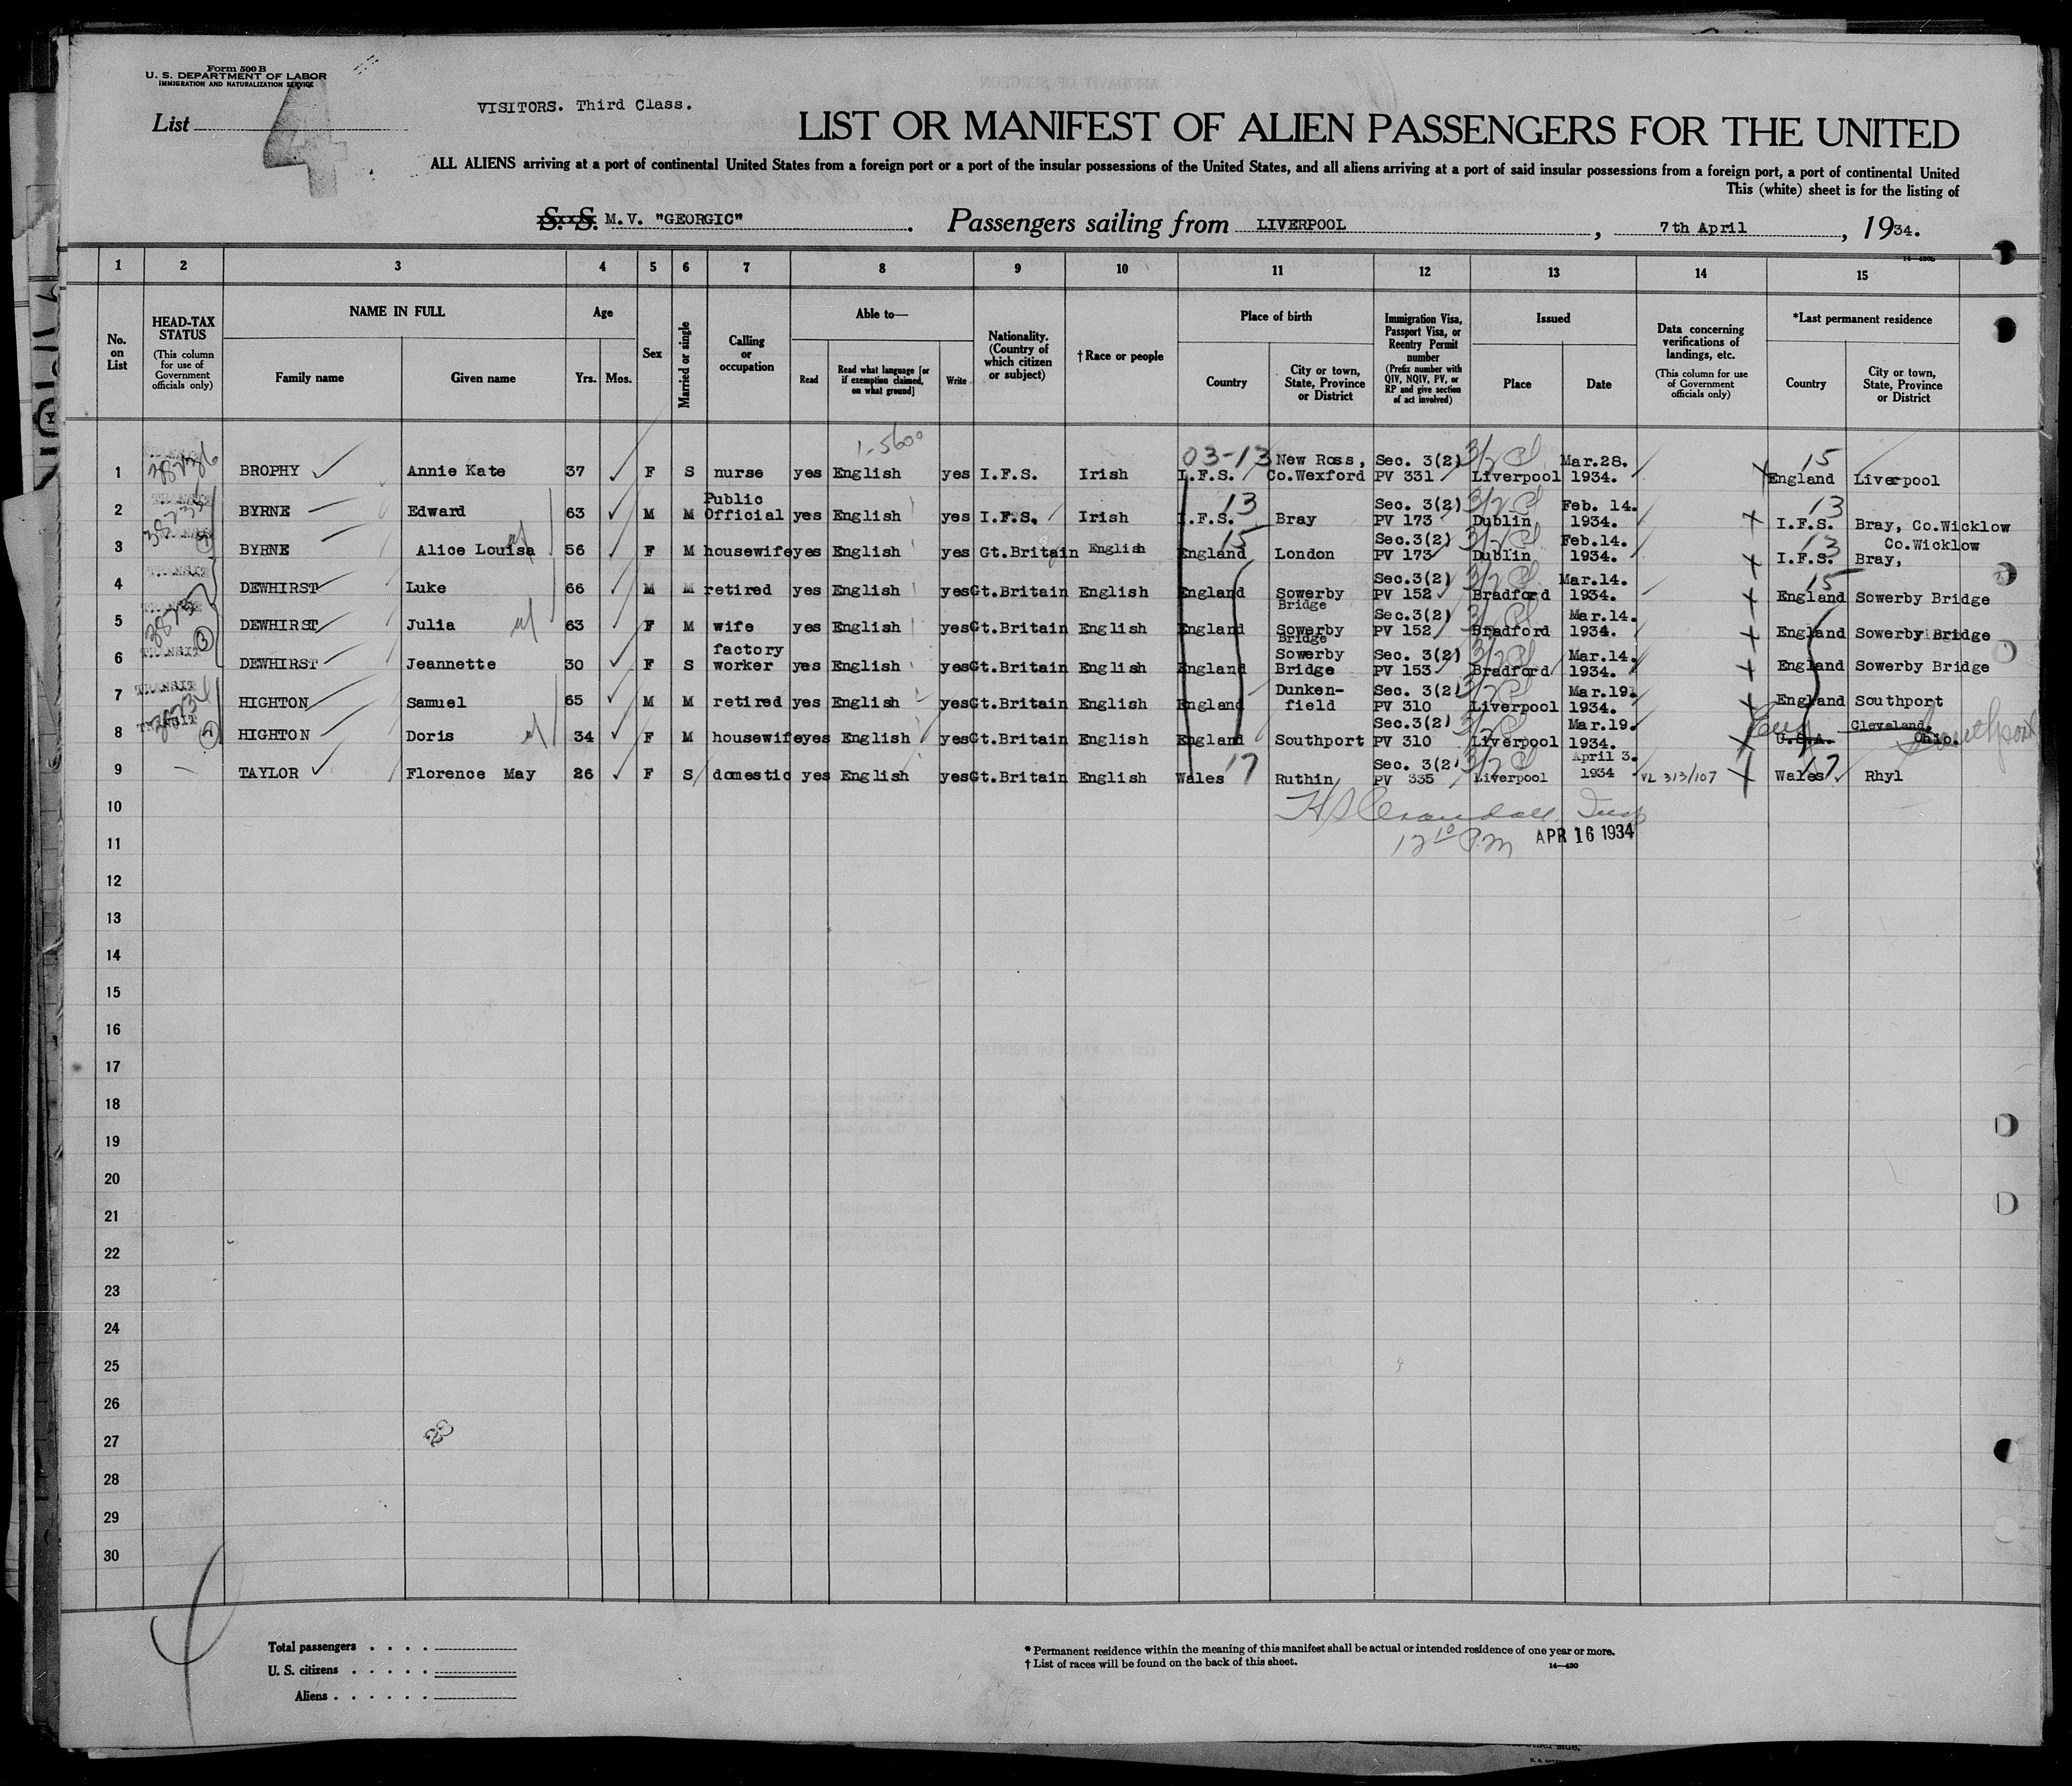 Form 500 B
U. S. DEPARTMENT OF LABOR
IMMIGRATION AND NATURALIZATION SERVICE
List
4
VISITORS. Third Class.
LIST OR MANIFEST OF ALIEN PASSENGERS FOR THE UNITED
ALL ALIENS arriving at a port of continental United States from a foreign port or a port of the insular possessions of the United States, and all aliens arriving at a port of said insular possessions from a foreign port, a port of continental United
This (white) sheet is for the listing of
S. S. M.V. "GEORGIC" . Passengers sailing from LIVERPOOL , 7th April , 1934.
1 2 3 4 5 6 7 8 9 10 11 12 13 14 15
No. on List
HEAD-TAX STATUS
(This column for use of Government officials only)
NAME IN FULL
Family name
Given name
Age
Yrs. Mos.
Sex
Married or single
Calling or occupation
Able to—
Read
Read what language [or if exemption claimed, on what ground]
Write
Nationality. (Country of which citizen or subject)
†Race or people
Place of birth
Country
City or town, State, Province or District
Immigration Visa, Passport Visa, or Reentry Permit number
(Prefix number with QIV, NQIV, PV, or RP and give section of act involved)
Issued
Place
Date
Data concerning verifications of landings, etc.
(This column for use of Government officials only)
*Last permanent residence
Country
City or town, State, Province or District
1-5600
03-13
15
1 BROPHY Annie Kate 37 F S nurse yes English yes I.F.S. Irish I.F.S. New Ross, Co.Wexford Sec. 3(2) PV 331 Liverpool Mar.28. 1934. England Liverpool
13
13
2 TRANSIT BYRNE Edward 63 M M Public Official yes English yes I.F.S. Irish I.F.S. Bray Sec. 3(2) PV 173 Dublin Feb. 14. 1934. I.F.S. Bray, Co.Wicklow
15
13
3 BYRNE Alice Louisa 56 F M housewife yes English yes Gt.Britain English England London Sec.3(2) PV 173 Dublin Feb.14. 1934. I.F.S. Bray, Co.Wicklow
15
4 TRANSIT DEWHIRST Luke 66 M M retired yes English yes Gt.Britain English England Sowerby Bridge Sec.3(2) PV 152 Bradford Mar.14. 1934. England Sowerby Bridge
5 DEWHIRST Julia 63 F M wife yes English yes Gt.Britain English England Sowerby Bridge Sec.3(2) PV 152 Bradford Mar.14. 1934. England Sowerby Bridge
6 TRANSIT DEWHIRST Jeannette 30 F S factory worker yes English yes Gt.Britain English England Sowerby Bridge Sec. 3(2) PV 153 Bradford Mar.14. 1934. England Sowerby Bridge
7 TRANSIT HIGHTON Samuel 65 M M retired yes English yes Gt.Britain English England Dunken-field Sec. 3(2) PV 310 Liverpool Mar.19. 1934. England Southport
8 TRANSIT HIGHTON Doris 34 F M housewife yes English yes Gt.Britain English England Southport Sec.3(2) PV 310 Liverpool Mar.19. 1934. U.S.A. Eng Cleveland, Ohio. Southport
17
17
9 TAYLOR Florence May 26 F S domestic yes English yes Gt.Britain English Wales Ruthin Sec. 3(2) PV 335 Liverpool April 3. 1934 VL 313/107 Wales Rhyl
10
H S Crandall Insp
11
12 10 P.M APR 16 1934
12
13
14
15
16
17
18
19
20
21
22
23
24
25
26
27
28
29
30
Total passengers . . . .
U. S. citizens . . . . .
Aliens . . . . . .
* Permanent residence within the meaning of this manifest shall be actual or intended residence of one year or more.
† List of races will be found on the back of this sheet.
14—430